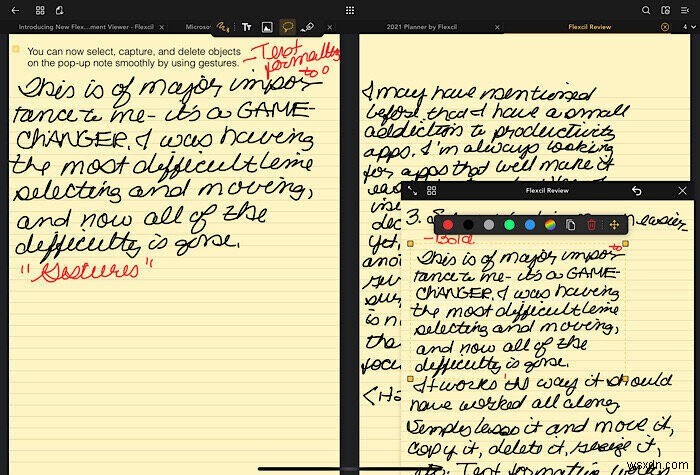 Introducing New Flex...ment Viewer - Flexcil
Microso
2021 Planner by Flexcil
Flexcil Review
4
You can now select, capture, and delete objects
on the pop-up note smoothly by using gestures.
- Text
formatting
too
This is of major impor
tance to me- it's a GAME-
CHANGER. I was having
the most difficult time
selecting and moving,
and now all of the
difficulty is gone.
"Gestures"
I may have mentioned
before that I have a small
addiction to productivity
apps. I'm always looking
for apps that will make it
Flexcil Review
3.
easier
- Bold
to
This is of major impor
tance to me- it's a GAME-
CHANGER. I was having
the most difficult time
selecting and moving,
and now all of the
difficulty is gone.
It works the way it should
have worked all along
Simply lasso it and move it,
copy it, delete it, resize it,
etc. Text formatting works
wsxdn.com